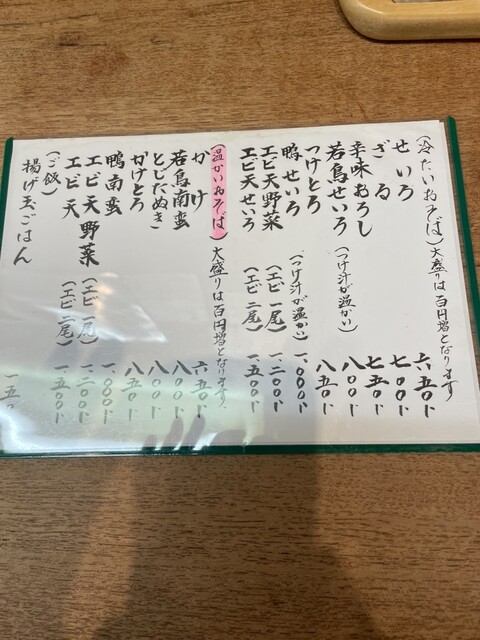 (冷たいおそば) 大盛りは百円増となります
せいろ 六五〇円
ざる 七〇〇円
辛味おろし 七五〇円
若鳥せいろ (つけ汁が温かい) 八〇〇円
つけとろ 八五〇円
鴨せいろ (つけ汁が温かい) 一、〇〇〇円
エビ天野菜 (エビ一尾) 一、二〇〇円
エビ天せいろ (エビ二尾) 一、五〇〇円
(温かいおそば) 大盛りは百円増となります。
かけ 六五〇円
若鳥南蛮 八〇〇円
とじたぬき 八〇〇円
かけとろ 八五〇円
鴨南蛮 一、〇〇〇円
エビ天野菜 (エビ一尾) 一、二〇〇円
エビ天 (エビ二尾) 一、五〇〇円
(ご飯)
揚げ玉ごはん 一五〇